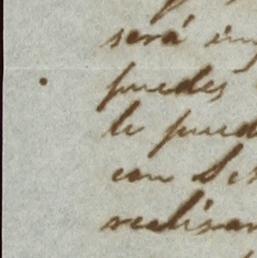 será im
puedes
le pued
con Ses
realisar